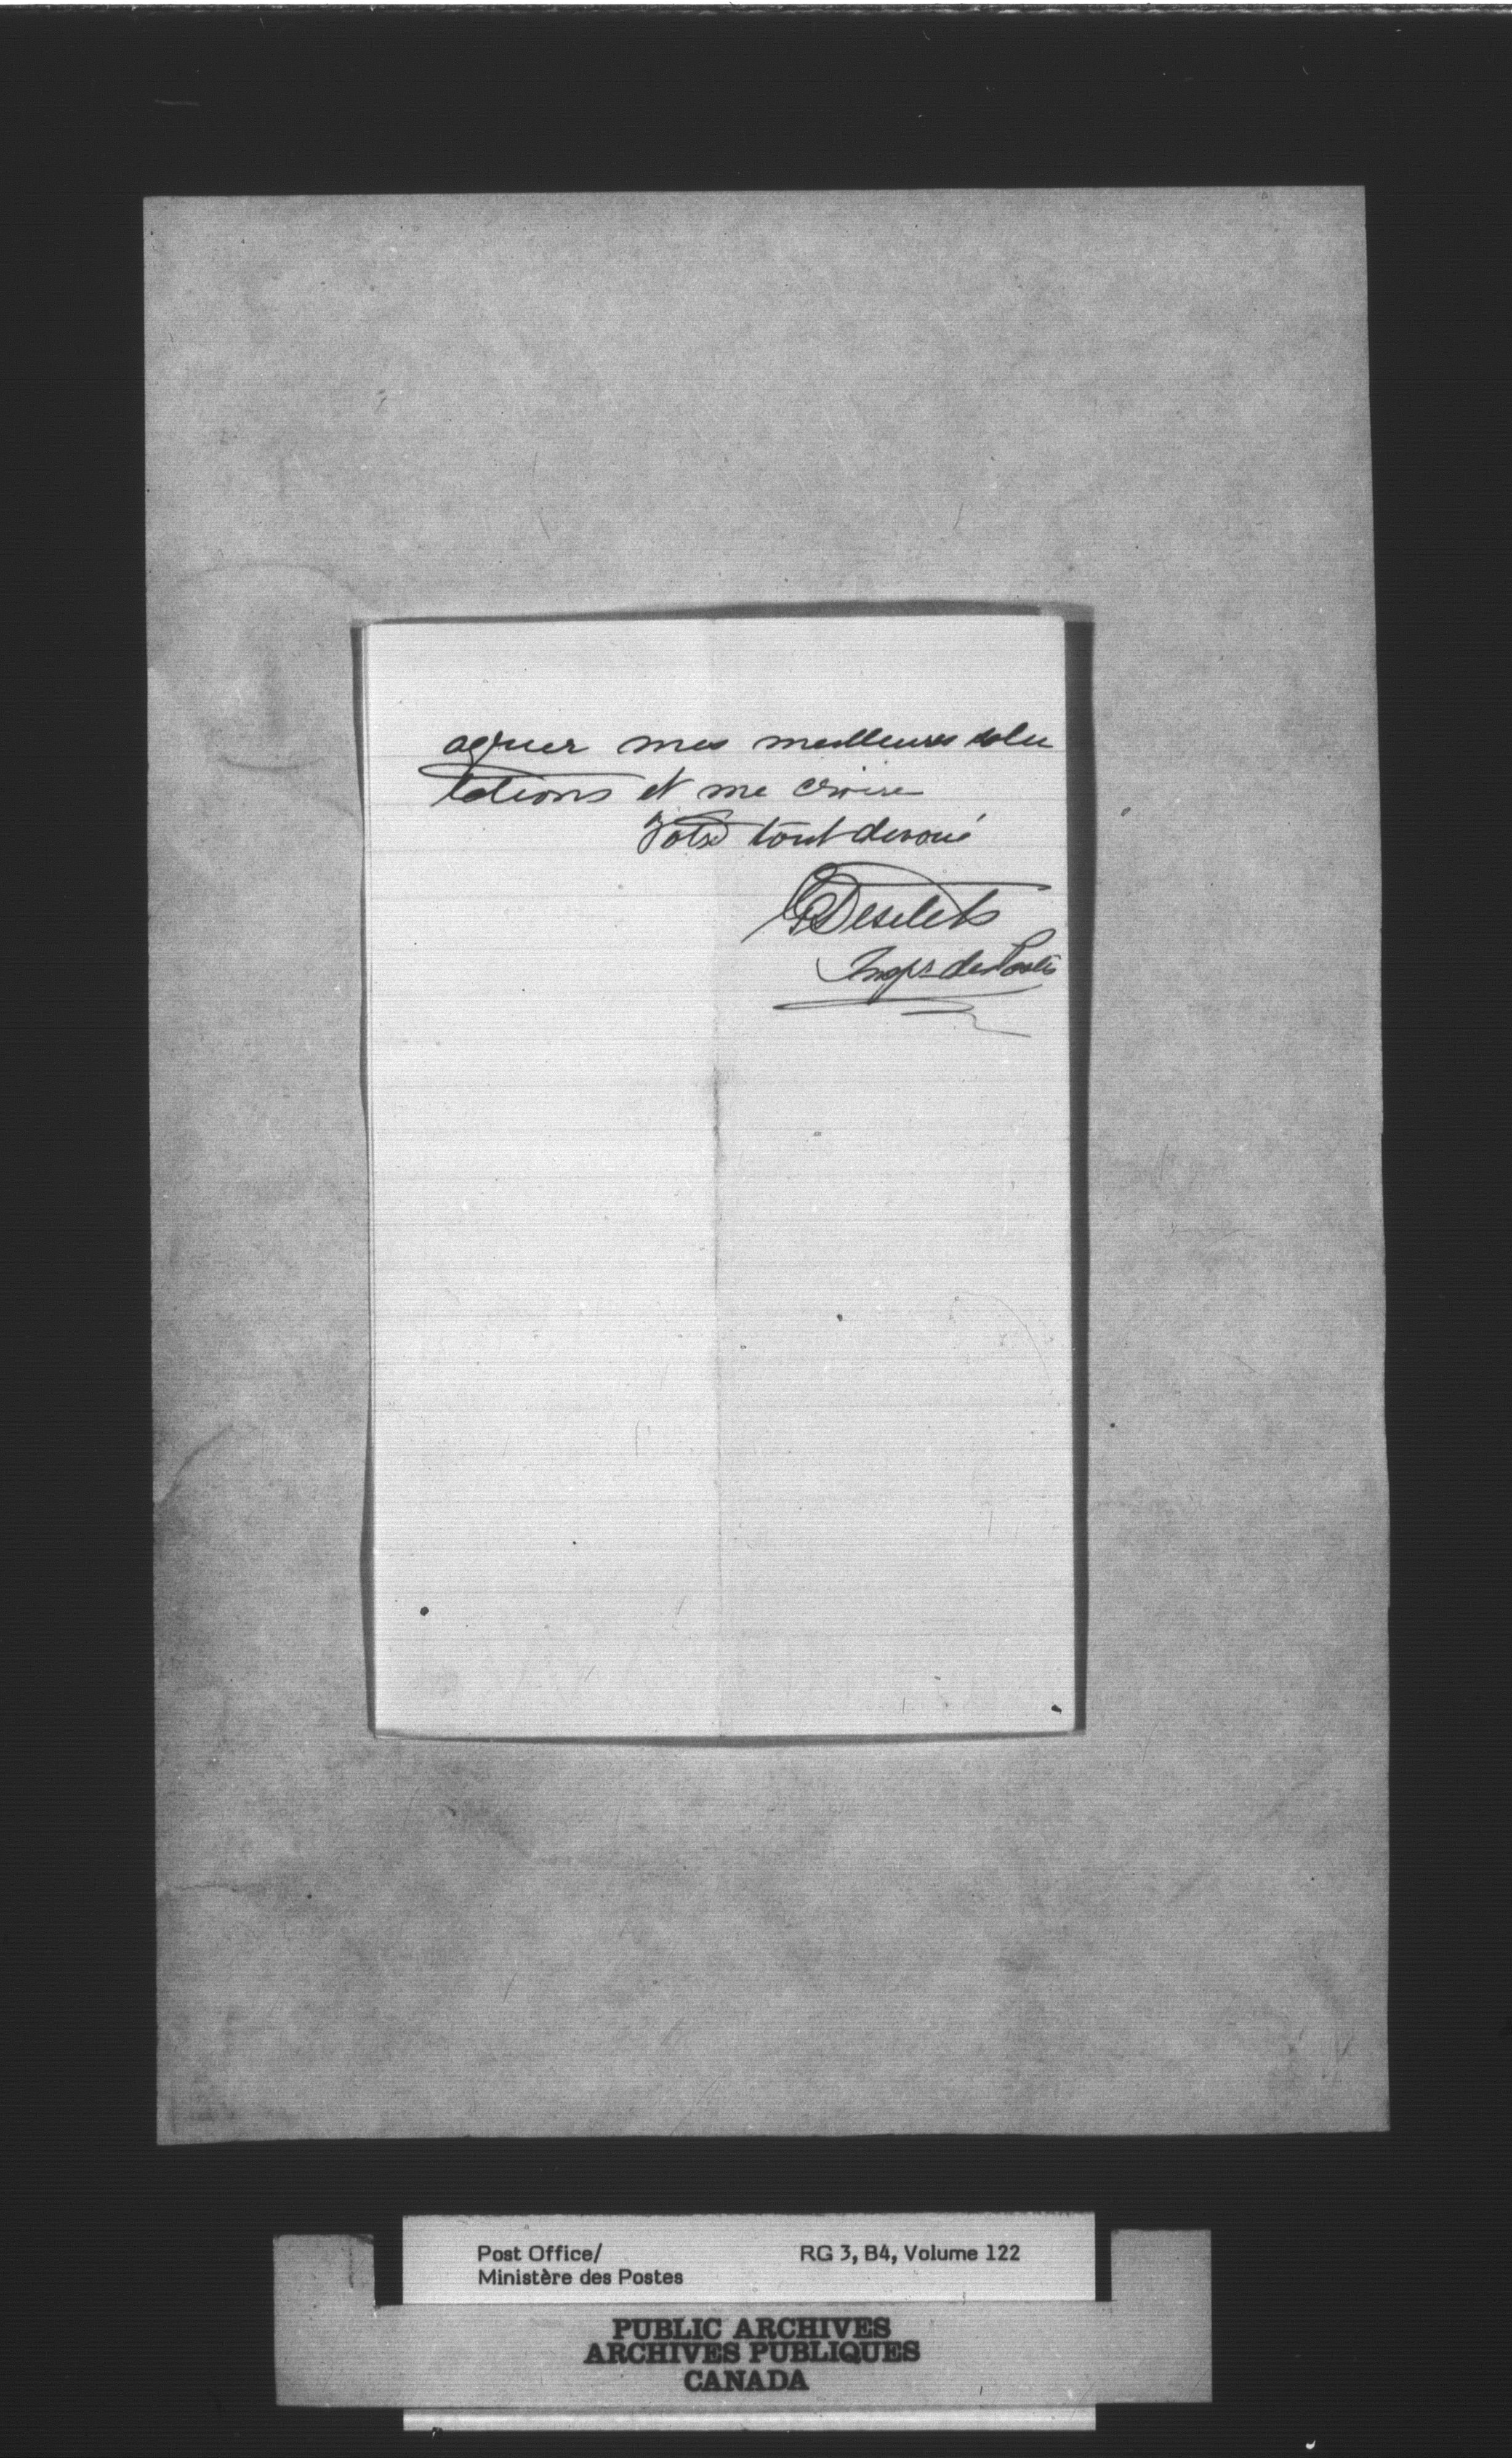 agreer mes meilleures salu
tations et me croire
Votre tout devoué
Desilets
Inspr des Postes
Post Office/
Ministère des Postes
RG 3, B4, Volume 122
PUBLIC ARCHIVES
ARCHIVES PUBLIQUES
CANADA